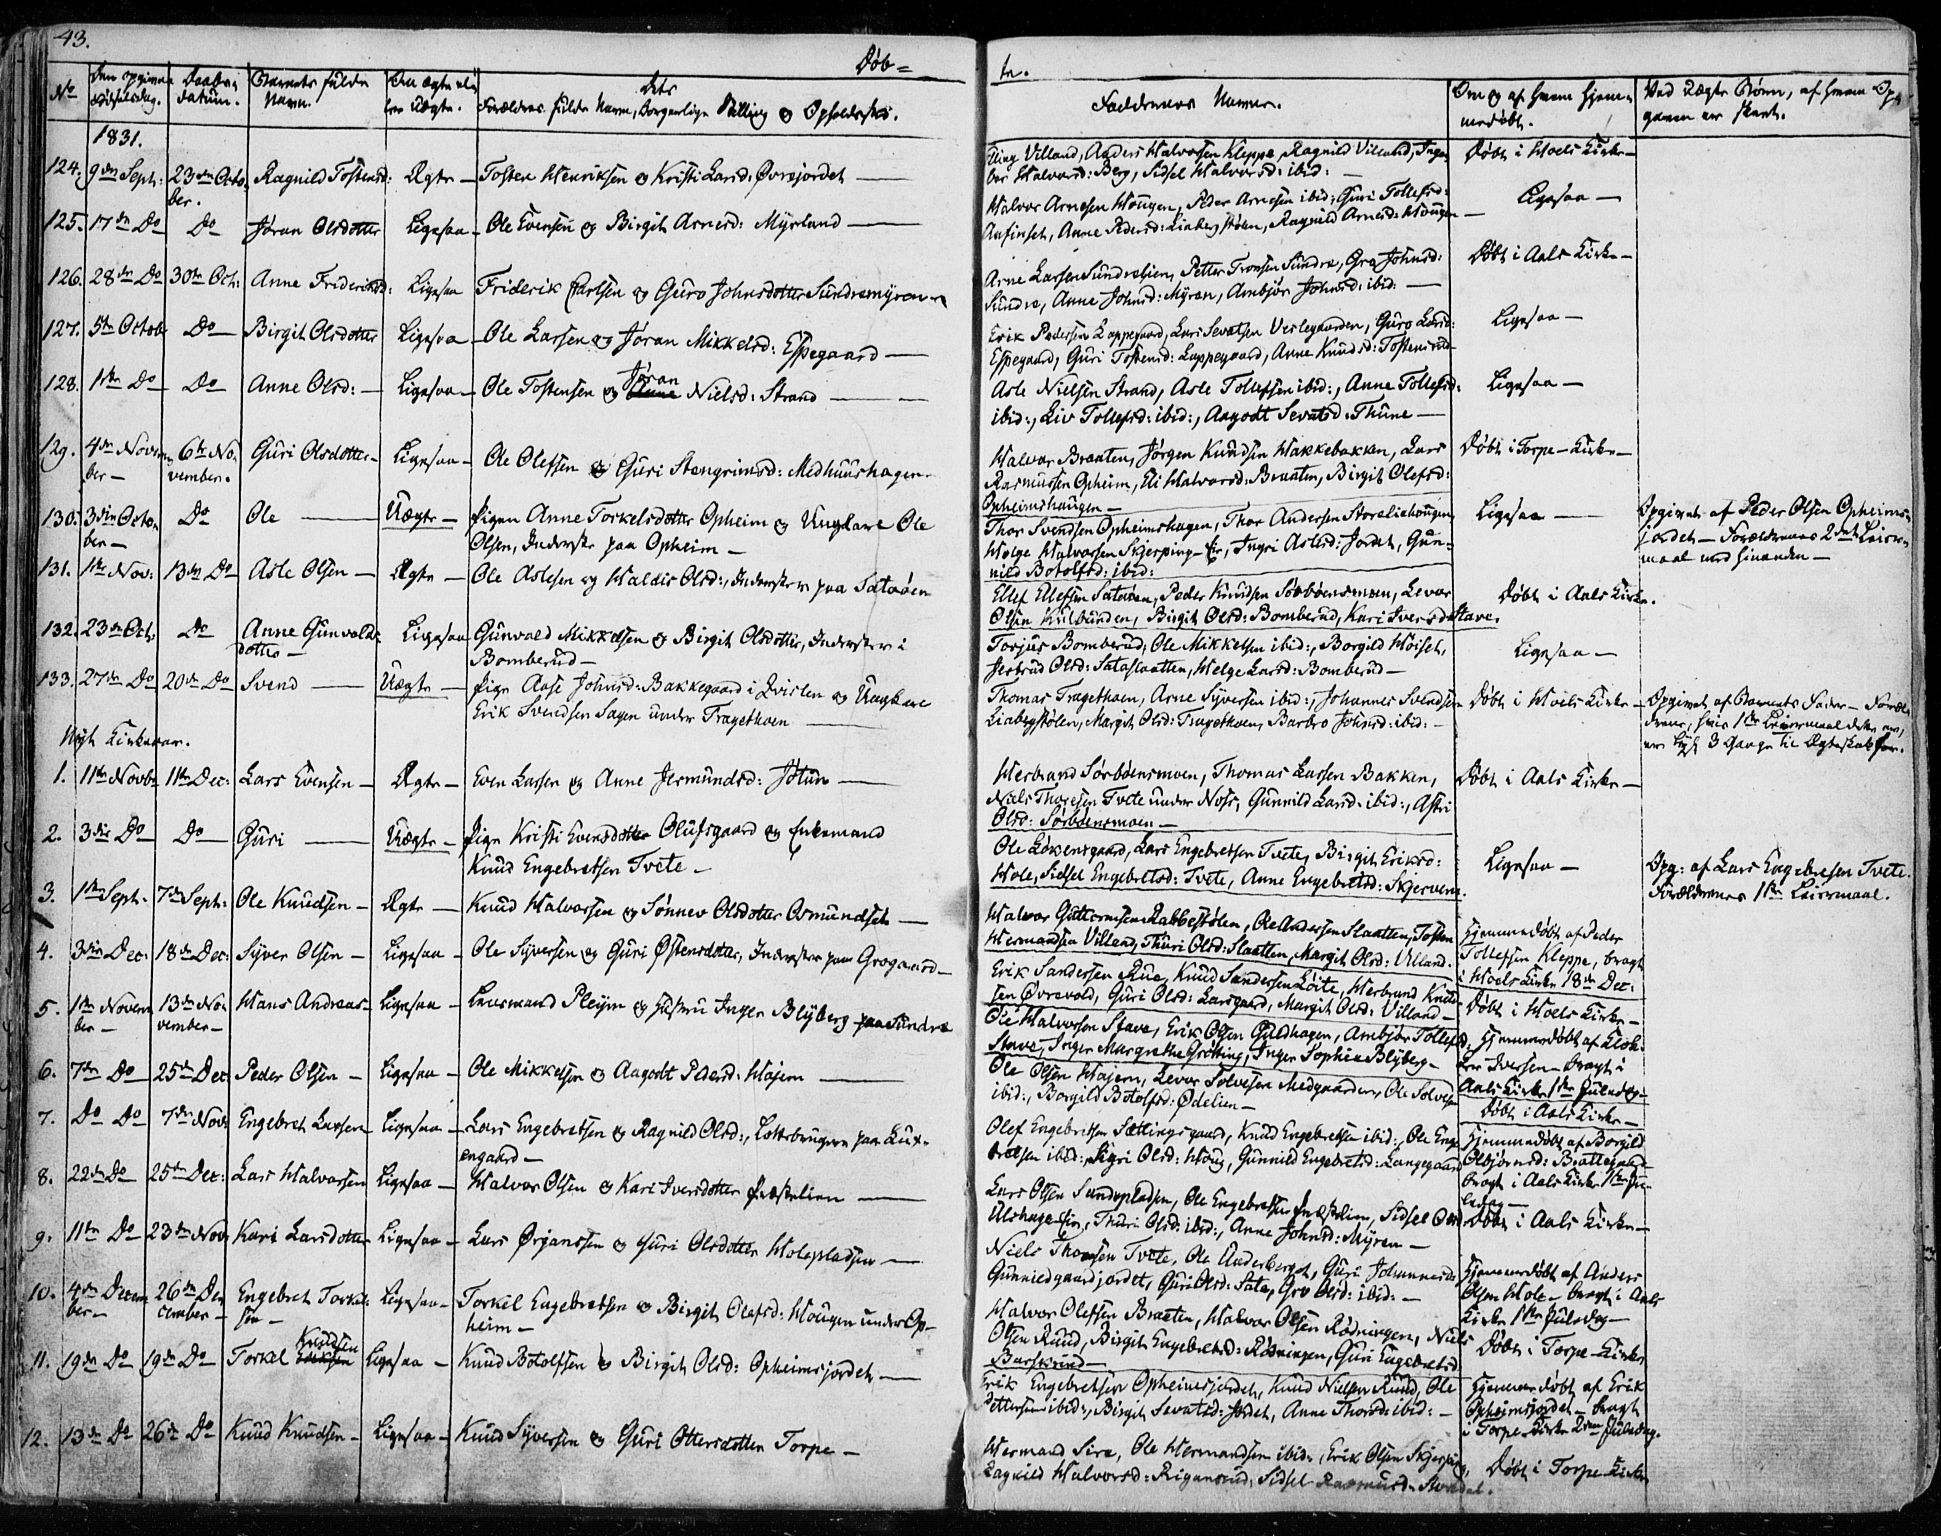 43.
Døb=
te.
No
Den opgivne Fødselsdag.
Daabs-datum.
Barnets fulde Navn.
Om ægte eller Uægte.
Dets
Forældres fulde Navn, Borgerlige Stilling og Opholdssted.
Faddernes Navne.
Om og af hvem hjemmedøbt.
Ved Uægte Børn, af hvem Opgaven er skeet.
1831.
124. 9de Sept: 23de October. Ragnild Tostensd: Ægte — Tosten Henriksen og Kristi Larsd: Øvrejordet —
Villand, Anders Halvorsen Kleppe, Ragnild Villand, Ingebor Halvorsd: Berg, Sidsel Halvorsd: ibid: —
Døbt i Hoels Kirke —
125. 17de Do Do Jøran Olsdotter Ligesaa — Ole Evensen og Birgit Arnesd: Myrland —
Halvor Arnesen Hougen, Peder Arnesen ibid, Guri Tollefsd:
Anfinset, Anne Pedersd: Liabergstølen, Ragnild Arnesd: Hougen
Ligesaa —
126. 28de Do 30te Oct: Anne Frideriksd: Ligesaa Friderik Carlsen og Guro Johnsdotter Sundremyren
Arne Larsen Sundrebjen, Petter Tronsen Sundre, Gro Johnsd:
Sundre, Anne Johnsd: Myren, Ambjør Johnsd: ibid: —
Døbt i Aals Kirke —
127. 5te Octob: Do — Birgit Olsdotter Ligesaa — Ole Larsen og Jøran Mikkelsd: Espegaard —
Erik Pedersen Loppegaard, Lars Sevatsen Veslegaarden, Guro Larsd:
Espegaard, Guri Tostensd: Loppegaard, Anne Knudsd: Tostensrud
Ligesaa —
128. 1ste Do Do Anne Olsd: — Ligesaa — Ole Tostensen og Jøran Nielsd: Strand —
Asle Nielsen Strand, Asle Tollefsen ibid:, Anne Tollefsd:
ibid:, Liv Tollefsd: ibid:, Aagodt Sevatsd: Thune —
Ligesaa —
129. 4de November — 6te November. Guri Olsdotter — Ligesaa — Ole Olefsen og Guri Stengrimsd: Medhuushagen —
Halvor Braaten, Jørgen Knudsen Hakkebakken, Lars
Rasmussen Opheim, Eli Halvorsd: Braaten, Birgit Olefsd:
Opheimshougen —
Døbt i Torpe-Kirke —
130. 3die October — Do Ole — Uægte — Pigen Anne Torkelsdotter Opheim og Ungkarl Ole
Olsen, Inderste paa Opheim —
Thor Svendsen Opheimshagen, Thor Andersen Storeliehougen,
Helge Halvorsen Skjerping-Eie, Ingri Aslesd: Jordet, Gunnild Botolfsd: ibid:
Ligesaa —
Opgivet af Peder Olsen Opheimsjordet — Forældrenes 2det Leiermaal med hinanden —
131. 1ste Nov: 13de Do Asle Olsen — Ægte — Ole Aslesen og Haldis Olsd:, Inderster paa Sataøen
Ellef Ellefsen Sataøen, Peder Knudsen Sørbøensmoen, Levor
Olsen Kulbunden, Birgit Olsd: Bomberud, Kari Iversd: Stave.
Døbt i Aals Kirke.
132. 23de Oct: Do Anne Gunvaldsdotter — Ligesaa Gunvald Mikkelsen og Birgit Olsdotter, Inderster i
Bomberud —
Torjus Bomberud, Ole Mikkelsen ibid:, Borgild Hoiset,
Jertrud Olsd: Sataslaatten, Helge Larsd: Bomberud —
Ligesaa —
133. 27de Do 20de Do Svend — Uægte — Pige Aase Johnsd: Bakkegaard i Qvislen og Ungkarl
Erik Svendsen Sagen under Tragethoen —
Thomas Tragethoen, Arne Syversen ibid:, Johannes Svendsen
Liabergstølen, Margit Olsd: Tragethoen, Barbro Johnsd: ibid: —
Døbt i Hoels Kirke —
Opgivet af Barnets Fader — Forældrene, hvis 1ste Leiermaal dette er,
ere lyst 3 Gange til Ægteskab for.
Nyt Kirkeaar.
1. 11te Novbr 11te Dec: Lars Evensen — Ægte — Even Larsen og Anne Jermundsd: Jøtun —
Herbrand Sørbøensmoen, Thomas Larsen Bakken,
Niels Thoresen Tvete under Noss, Gunnild Larsd: ibid:, Astri
Olsd: Sørbøensmoen —
Døbt i Aals Kirke —
2. 3die Do Do — Guri — Uægte — Pige Kristi Evensdotter Olufsgaard og Enkemand
Knud Engebretsen Tvete —
Ole Løkensgaard, Lars Engebretsen Tvete, Birgit Eriksd:
Hole, Sidsel Engebretsd: Tvete, Anne Engebretsd: Skjerven
Ligesaa —
Opg: af Lars Engebretsen Tvete.
Forældrenes 1ste Leiermaal.
3. 1ste Sept. 7de Sept: Ole Knudsen — Ægte — Knud Halvorsen og Sønnev Olsdotter Osmundset —
Halvor Guttormsen Rabbestølen, Ole Andersen Slaatten, Tosten
Hermandsen Villand, Thuri Olsd: Slaatten, Margit Olsd: Villand.
4. 3die Dec: 18de Dec: Syver Olsen — Ligesaa — Ole Syversen og Guri Østensdotter, Inderster paa Grøgaard —
Erik Sandersen Rue, Knud Sandersen Løite, Herbrand Knudsen Øvrevold, Guri Olsd: Larsgaard, Margit Olsd: Villand —
Hjemmedøbt af Peder
Tollefsen Kleppe, bragt
i Hoels Kirke 18de Dec:
5. 1ste November — 13de November — Hans Andreas — Ligesaa — Lensmand Pleym og Hustru Inger Blyberg paa Sundre
Ole Halvorsen Stave, Erik Olsen Guldhagen, Ambjør Tollefsd:
Stave, Inger Margrethe Grøtting, Inger Sophie Blyberg —
Døbt i Hoels Kirke —
6. 7de Do 25de Dec: Peder Olsen — Ligesaa — Ole Mikkelsen og Aagodt Pedersd: Hajem —
Ole Olsen Hajem, Levor Solvesen Medgaarden, Ole Solvesen
ibid:, Borgild Botolfsd: Ødelien —
Hjemmedøbt af Klokker Iversen — bragt i
Aals Kirke 1ste Juledag —
7. Do Do 7de Nov: Engebret Larsen — Ligesaa — Lars Engebretsen og Ragnild Olsd:, Lottebrugere paa Luxengaard —
Olef Engebretsen Sættingsgaard, Knud Engebretsen ibid:, Ole Engebretsen ibid:, Sigri Olsd: Houg, Gunnild Engebretsd: Langegaard
Døbt i Aals Kirke —
8. 22de Do 25de Dec: Lars Halvorsen Ligesaa — Halvor Olsen og Kari Iversdotter Præstelien —
Lars Olsen Sandopladsen, Ole Engebretsen Præstelien, Sidsel Olsd:
Ulshage-Eie, Thuri Olsd: ibid:, Anne Johnsd: Myren —
Hjemmedøbt af Borgild
Olbjørnsd: Brattegaard
bragt i Aals Kirke 1ste Juledag —
9. 11te Do 23de Nov: Kari Larsdotter Ligesaa — Lars Ørjansen og Guri Olsdotter Holepladsen —
Niels Thoresen Tvete, Ole Underberget, Guri Johannesd:
Gunnildgaardjordet, Guri Olsd: Sata, Gro Olsd: ibid: —
Døbt i Aals Kirke —
10. 4de December — 26de December — Engebret Torkelsen — Ligesaa — Torkel Engebretsen og Birgit Olefsd: Hougen under Opheim —
Halvor Olefsen Braaten, Halvor Olsen Rødningen, Niels
Olsen Ruud, Birgit Engebretsd: Rødningen, Guri Engebretsd:
Barskrud —
Hjemmedøbt af Anders
Olsen Hole — bragt i Aals
Kirke 1ste Juledag —
11. 19de Do 19de Do Torkel Knudsen Ligesaa — Knud Botolfsen og Birgit Olsd: Opheimsjordet —
Erik Engebretsen Opheimsjordet, Knud Nielsen Ruud, Ole
Pettersen ibid:, Birgit Sevatsd: Jordet, Anne Thorsd: ibid: —
Døbt i Torpe-Kirke
12. 13de Do 26de Do Knud Knudsen — Ligesaa — Knud Syversen og Guri Ottersdotter Torpe —
Hermand Sire, Ole Hermandsen ibid:, Erik Olsen Skjerping,
Ragnild Halvorsd: Rigansrud, Sidsel Rasmusd:
Hjemmedøbt af Erik
Opheimsjordet — bragt
i Torpe Kirke 2den Juledag.
Døbt i Torpe-Kirke